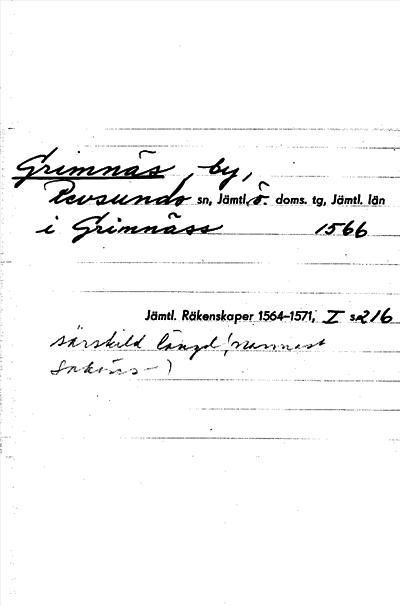 Grimnäs, by,
Revsunds sn, Jämtl. ö. doms. tg, Jämtl. län
i Grimnäss 1566
Jämtl. Räkenskaper 1564–1571, I s. 216
särskild längd, närmast